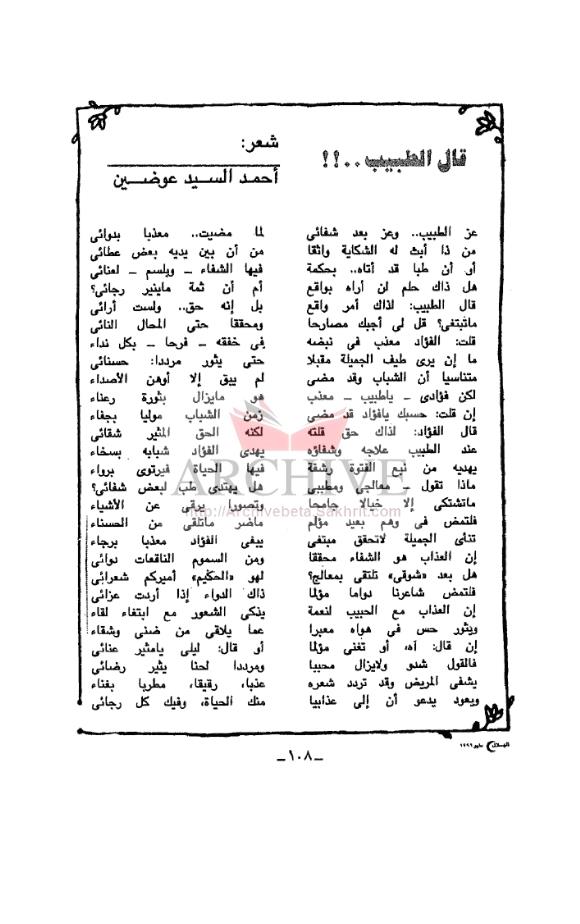 قال الطبيب..!!
شعر:
أحمد السيد عوضين
عز الطبيب.. وعز بعد شفائى لما مضيت.. معذبا بدوائى
من ذا أبث له الشكاية واثقا من أن بين يديه بعض عطائى
أو أن طبا قد أتاه.. بحكمة فيها الشفاء ـ وبلسم ـ لعنائى
هل ذاك حلم لن أراه بواقع أم أن ثمة ماينير رجائى؟
قال الطبيب: لذاك أمر واقع بل إنه حق.. ولست أرائى
ماتبتغى؟ قل لى أجبك مصارحا ومحققا حتى المحال النائى
قلت: الفؤاد معذب فى نبضه فى خفقه ـ فرحا ـ بكل نداء
ما إن يرى طيف الجميلة مقبلا حتى يثور مرددا: حسنائى
متناسيا أن الشباب وقد مضى لم يبق إلا أوهن الأصداء
لكن فؤادى ـ ياطبيب ـ معذب هو مايزال بثورة رعناء
إن قلت: حسبك يافؤاد قد مضى زمن الشباب موليا بجفاء
قال الفؤاد: لذاك حق قلته لكنه الحق المثير شقائى
عند الطبيب علاجه وشفاؤه يهدى الفؤاد شبابه بسخاء
يهديه من نبع الفتوة رشفة فيها الحياة فيرتوى برواء
ماذا تقول ـ معالجى ومطببى هل يهتدى طب لبعض شفائى؟
ماتشتكى إلا خيالا جامحا وتصورا يرقى عن الأشياء
فلتمض فى وهم بعيد مؤلم ماضر ماتلقى من الحسناء
تنأى الجميلة لاتحقق مبتغى يبقى الفؤاد معذبا برجاء
إن العذاب هو الشفاء محققا ومن السموم الناقعات دوائى
هل بعد «شوقى» تلتقى بمعالج؟ لهو «الحكيم» أميركم شعرائى
فلتمض شاعرنا دواما مؤلما ذاك الدواء إذا أردت عزائى
إن العذاب مع الحبيب لنعمة يذكى الشعور مع ابتغاء لقاء
ويثور حس فى هواه معبرا عما يلاقى من ضنى وشقاء
إن قال: آه، أو تغنى مؤلما أو قال: ليلى يامثير عنائى
فالقول شدو ولايزال محببا ومرددا لحنا يثير رضائى
يشفى المريض وقد تردد شعره عذبا، رقيقا، مطربا بغناء
ويعود يدعو أن إلى عذابيا منك الحياة، وفيك كل رجائى
ARCHIVE
http://Archivebeta.Sakhrit.com
الهلال مايو ١٩٩٦
ـ ١٠٨ ـ